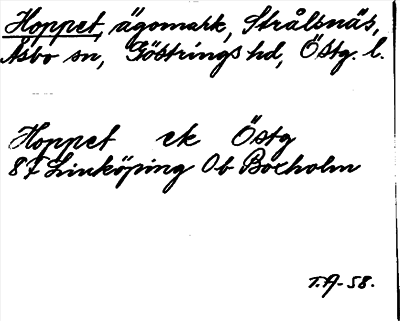 Hoppet, ägomark, Strålsnäs,
Åsbo sn, Göstrings hd, Östg. l.
Hoppet ek Östg
8 F Linköping 0b Boxholm
T.A-58.